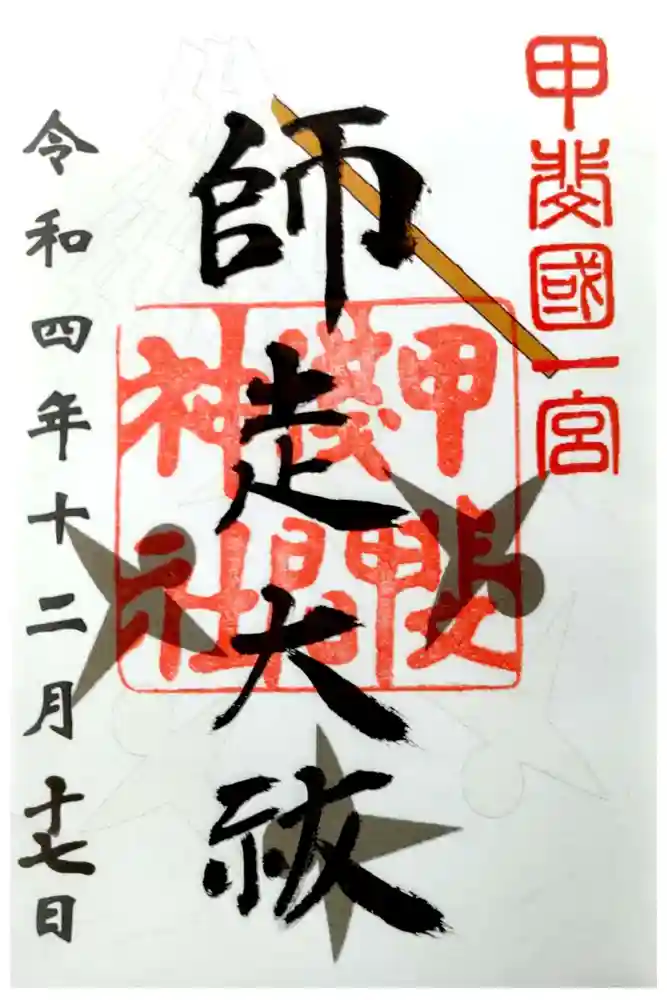 甲斐國一宮
師走大祓
甲斐
淺間
神社
令和四年十二月十七日